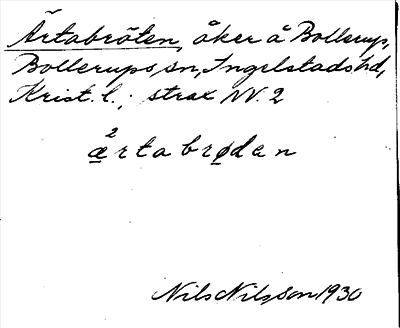 Ärtabröten, åker å Bollerup,
Bollerups sn, Ingelstads hd,
Krist. l.; strax NV. 2
2
ærtabrødan
Nils Nilsson 1930